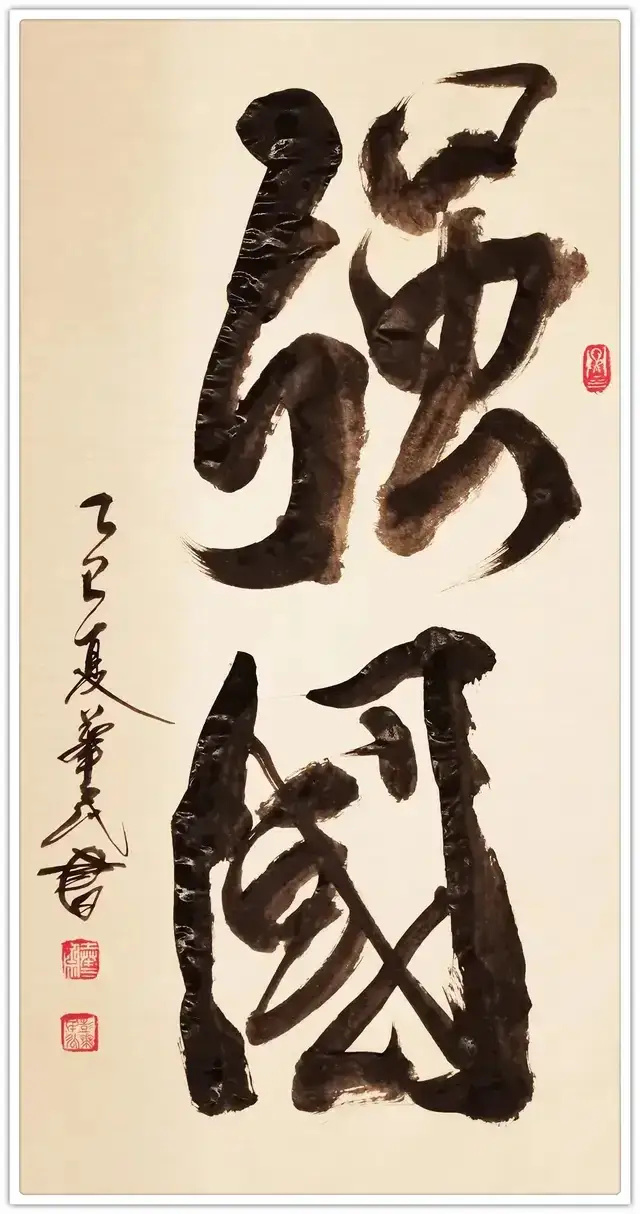 强國
乙巳夏華民書